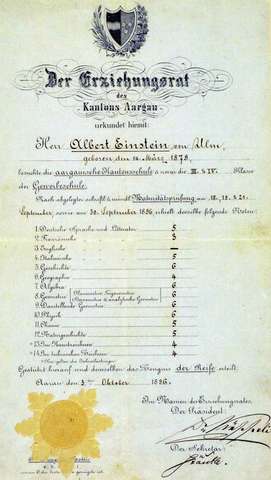 Der Erziehungsrat
des
Kantons Aargau
urkundet hiemit:
Herr Albert Einstein von Ulm,
geboren den 14. März, 1879,
besuchte die aargauische Kantonsschule & zwar die III. & IV. Klasse
der Gewerbeschule.
Nach abgelegter schriftl. & mündl. Maturitätsprüfung am 18., 19. & 21.
September, sowie am 30. September 1896, erhielt derselbe folgende Noten:
1. Deutsche Sprache und Litteratur 5
2. Französische 3
3. Englische —
4. Italienische 5
5. Geschichte 6
6. Geographie 4
7. Algebra 6
8. Geometrie 6
9. Darstellende Geometrie 6
10. Physik 6
11. Chemie 5
12. Naturgeschichte 5
*13. Im Kunstzeichnen 4
*14. Im technischen Zeichnen 4
Gestützt hierauf wird demselben das Zeugnis der Reife erteilt.
Aarau den 3ten Oktober 1896.
Im Namen des Erziehungsrates,
Der Präsident:
Der Sekretär: